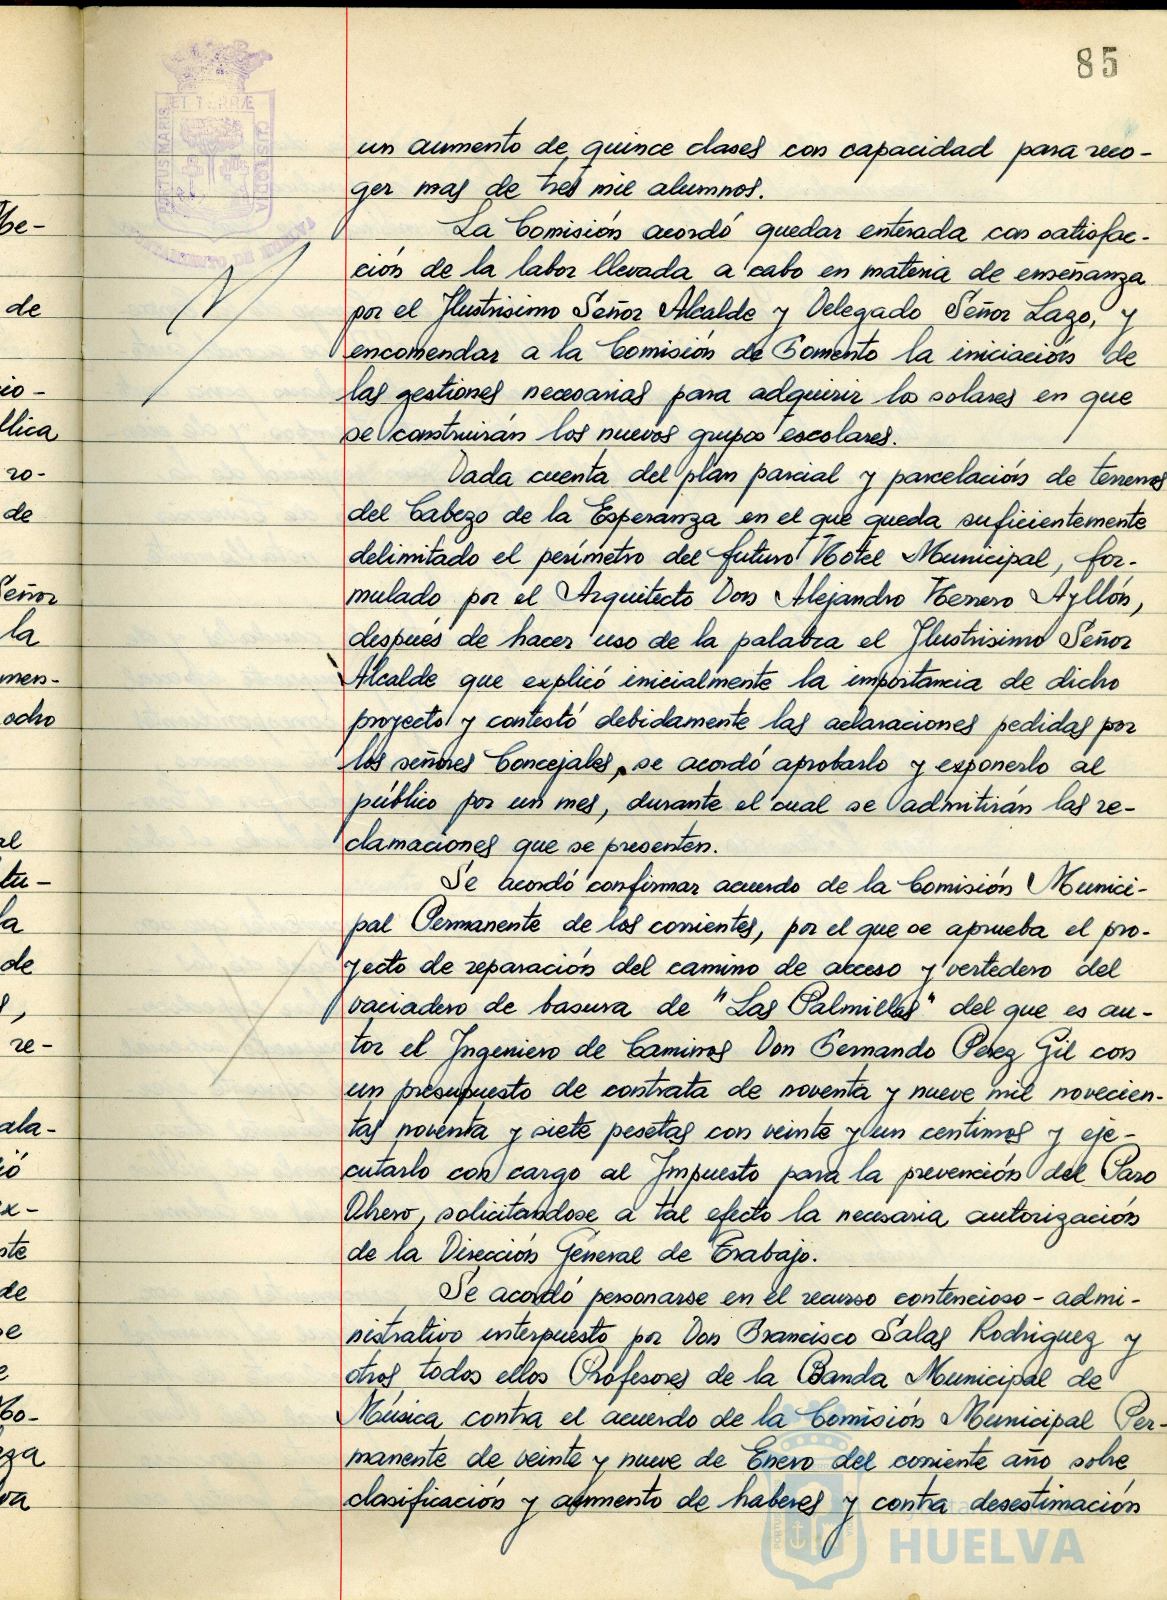 85
PORTUS MARIS
ET TERRÆ
CUSTODIA
AYUNTAMIENTO DE HUELVA
un aumento de quince clases con capacidad para reco-
ger mas de tres mil alumnos.
La Comisión acordó quedar enterada con satisfac-
ción de la labor llevada a cabo en materia de enseñanza
por el Ilustrisimo Señor Alcalde y Delegado Señor Lago, y
encomendar a la Comisión de Fomento la iniciación de
las gestiones necesarias para adquirir los solares en que
se construirán los nuevos grupos escolares.
Dada cuenta del plan parcial y parcelación de terrenos
del Cabezo de la Esperanza en el que queda suficientemente
delimitado el perímetro del futuro Hotel Municipal, for-
mulado por el Arquitecto Don Alejandro Herrero Ayllón,
después de hacer uso de la palabra el Ilustrisimo Señor
Alcalde que explicó inicialmente la importancia de dicho
proyecto y contestó debidamente las aclaraciones pedidas por
los señores Concejales, se acordó aprobarlo y exponerlo al
público por un mes, durante el cual se admitirán las re-
clamaciones que se presenten.
Se acordó confirmar acuerdo de la Comisión Munici-
pal Permanente de los corrientes, por el que se aprueba el pro-
yecto de reparación del camino de acceso y vertedero del
vaciadero de basura de "Las Palmillas" del que es au-
tor el Ingeniero de Caminos Don Fernando Perez Gil con
un presupuesto de contrata de noventa y nueve mil novecien-
tas noventa y siete pesetas con veinte y un centimos y eje-
cutarlo con cargo al Impuesto para la prevención del Paro
Obrero, solicitandose a tal efecto la necesaria autorización
de la Dirección General de Trabajo.
Se acordó personarse en el recurso contencioso-admi-
nistrativo interpuesto por Don Francisco Salas Rodriguez y
otros todos ellos Profesores de la Banda Municipal de
Música contra el acuerdo de la Comisión Municipal Per-
manente de veinte y nueve de Enero del corriente año sobre
clasificación y aumento de haberes y contra desestimación
HUELVA